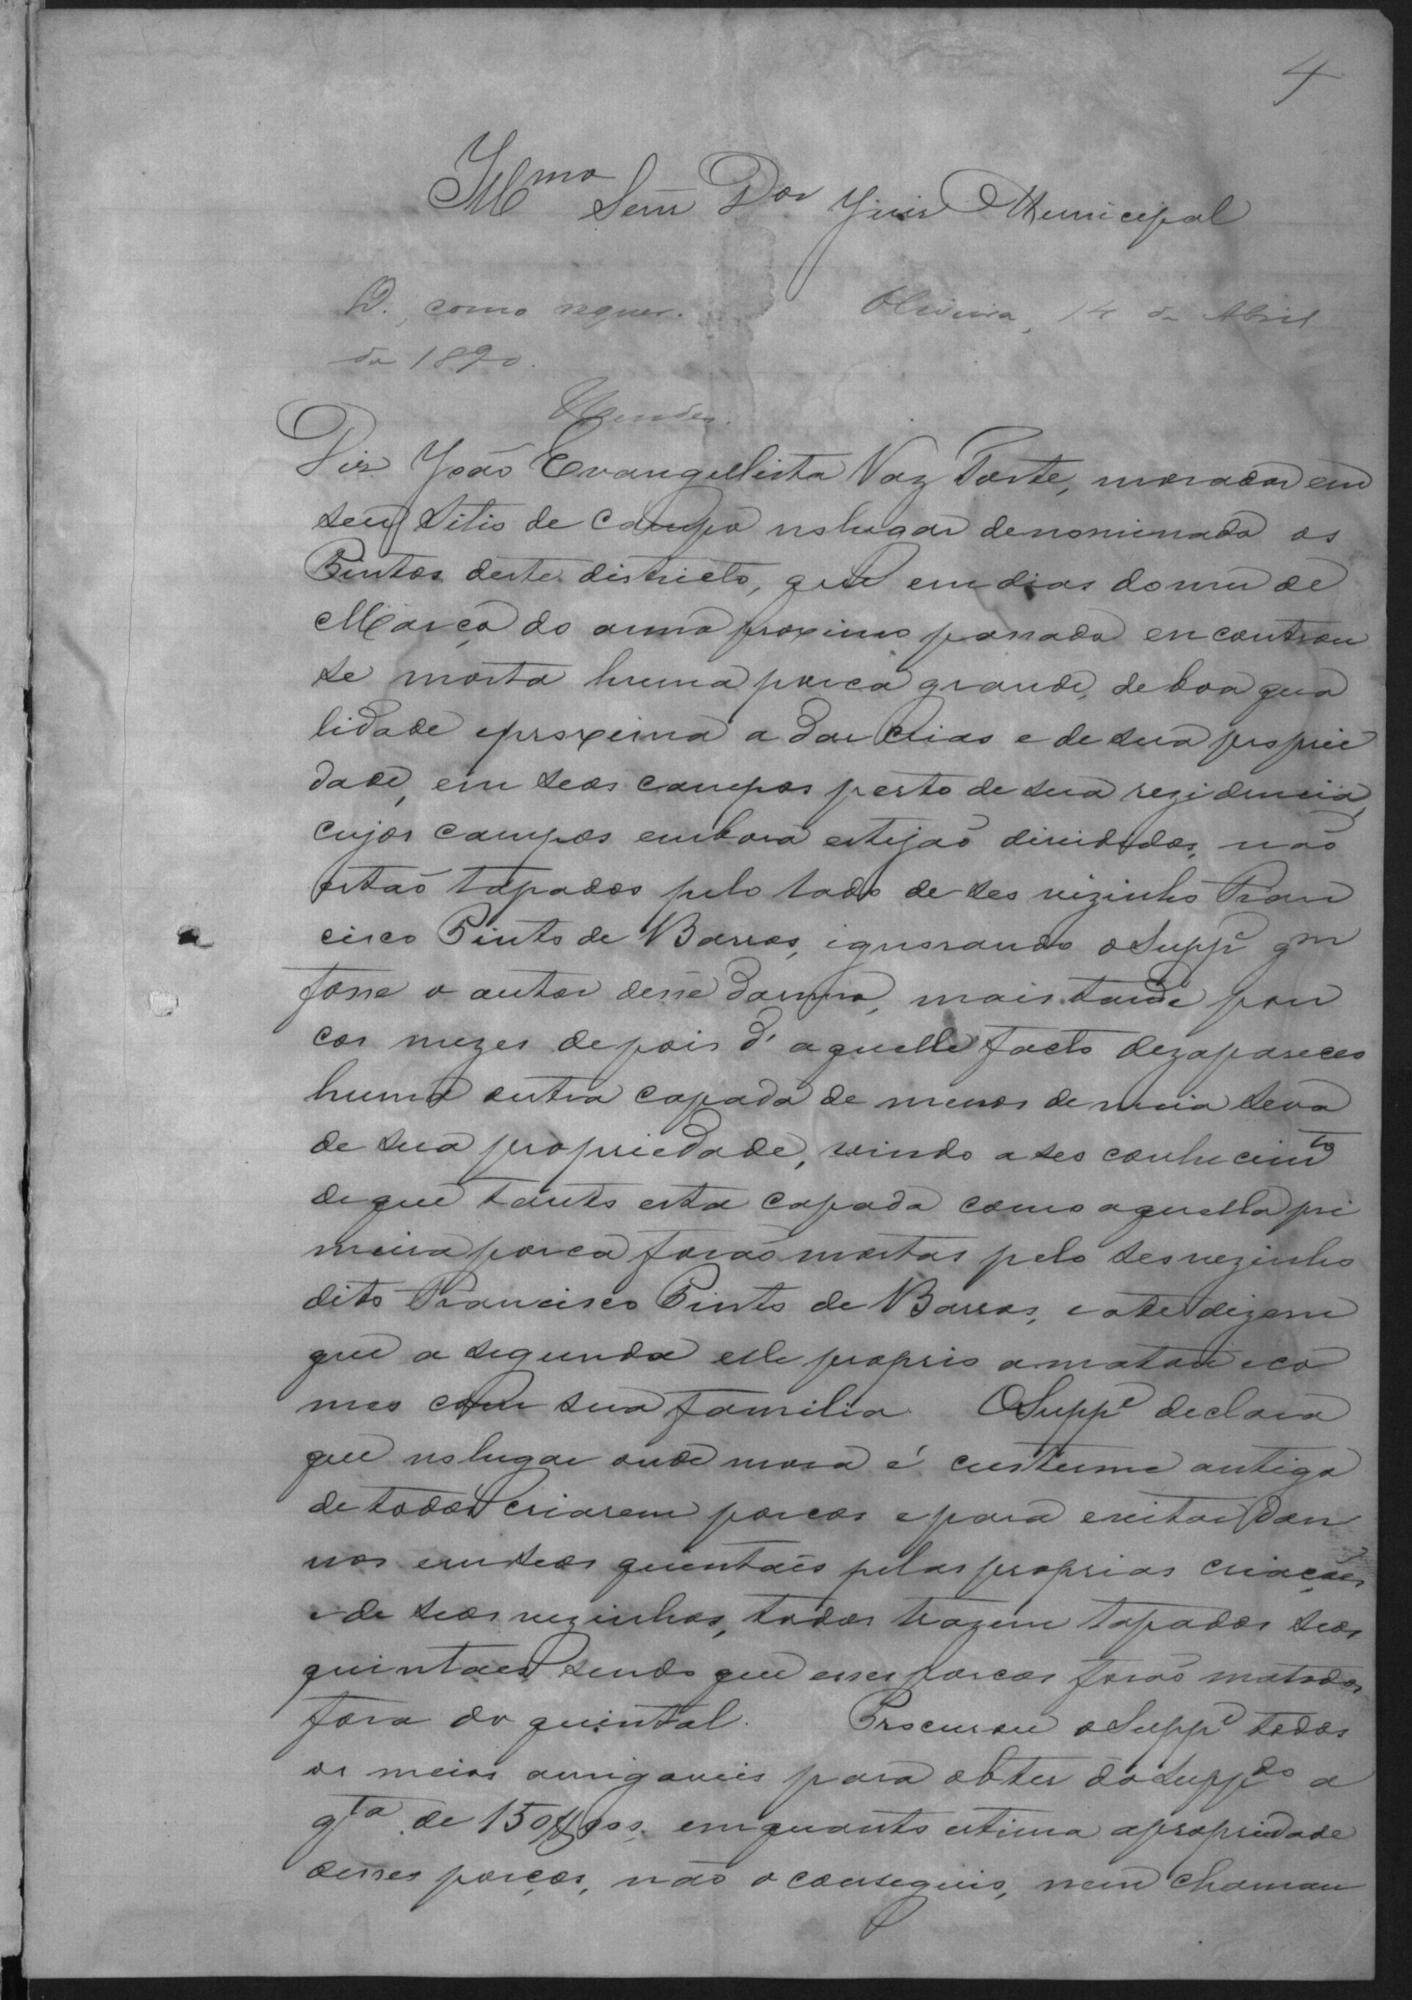 4
Illmo Senr Dor Juis Municipal
D., como requer. Oliveira, 14 de Abril
de 1890.
Mendes.
Diz João Evangellista Vaz Forte, morador em
seu sitio de campo no lugar denominado os
Pintos deste districto, que em dias do mez de
Março do anno proximo passado encontrou
se morta huma porca grande, de boa qua
lidade e proxima a dar crias e de sua proprie
dade, em seos campos perto de sua rezidencia,
cujos campos embora estijão divididos, não
estão tapados pelo lado de seo vizinho Fran
cisco Pinto de Barros, ignorando o Suppe qm
fosse o autor desse damno, mais tarde pou
cos mezes depois d'aquelle facto dezapareceo
huma outra capada de menos de meia seva
de sua propriedade, vindo a seo conhecimto
de que tanto esta capada como aquella pri
meira porca forão mortas pelo seo vezinho
dito Francisco Pinto de Barros, e ate dizem
que a segunda elle proprio a matou e co
meo com sua familia. O Suppe declara
que no lugar onde mora é custume antigo
de todos criarem porcos e para evitar dan
nos em seos quintaes pelas proprias criações
e de seos vezinhos, todos trazem tapados seos
quintaes sendo que esses porcos forão matados
fora do quintal. Procurou o Suppe todos
os meios amigaveis para obter do Suppdo a
qta de 150$000 emquanto estima a propriedade
desses porcos, não o conseguio, nem chaman